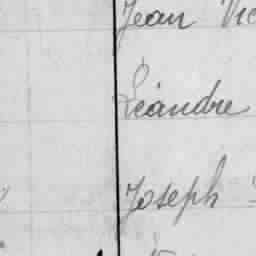 Jean Vic
Léandre
Joseph